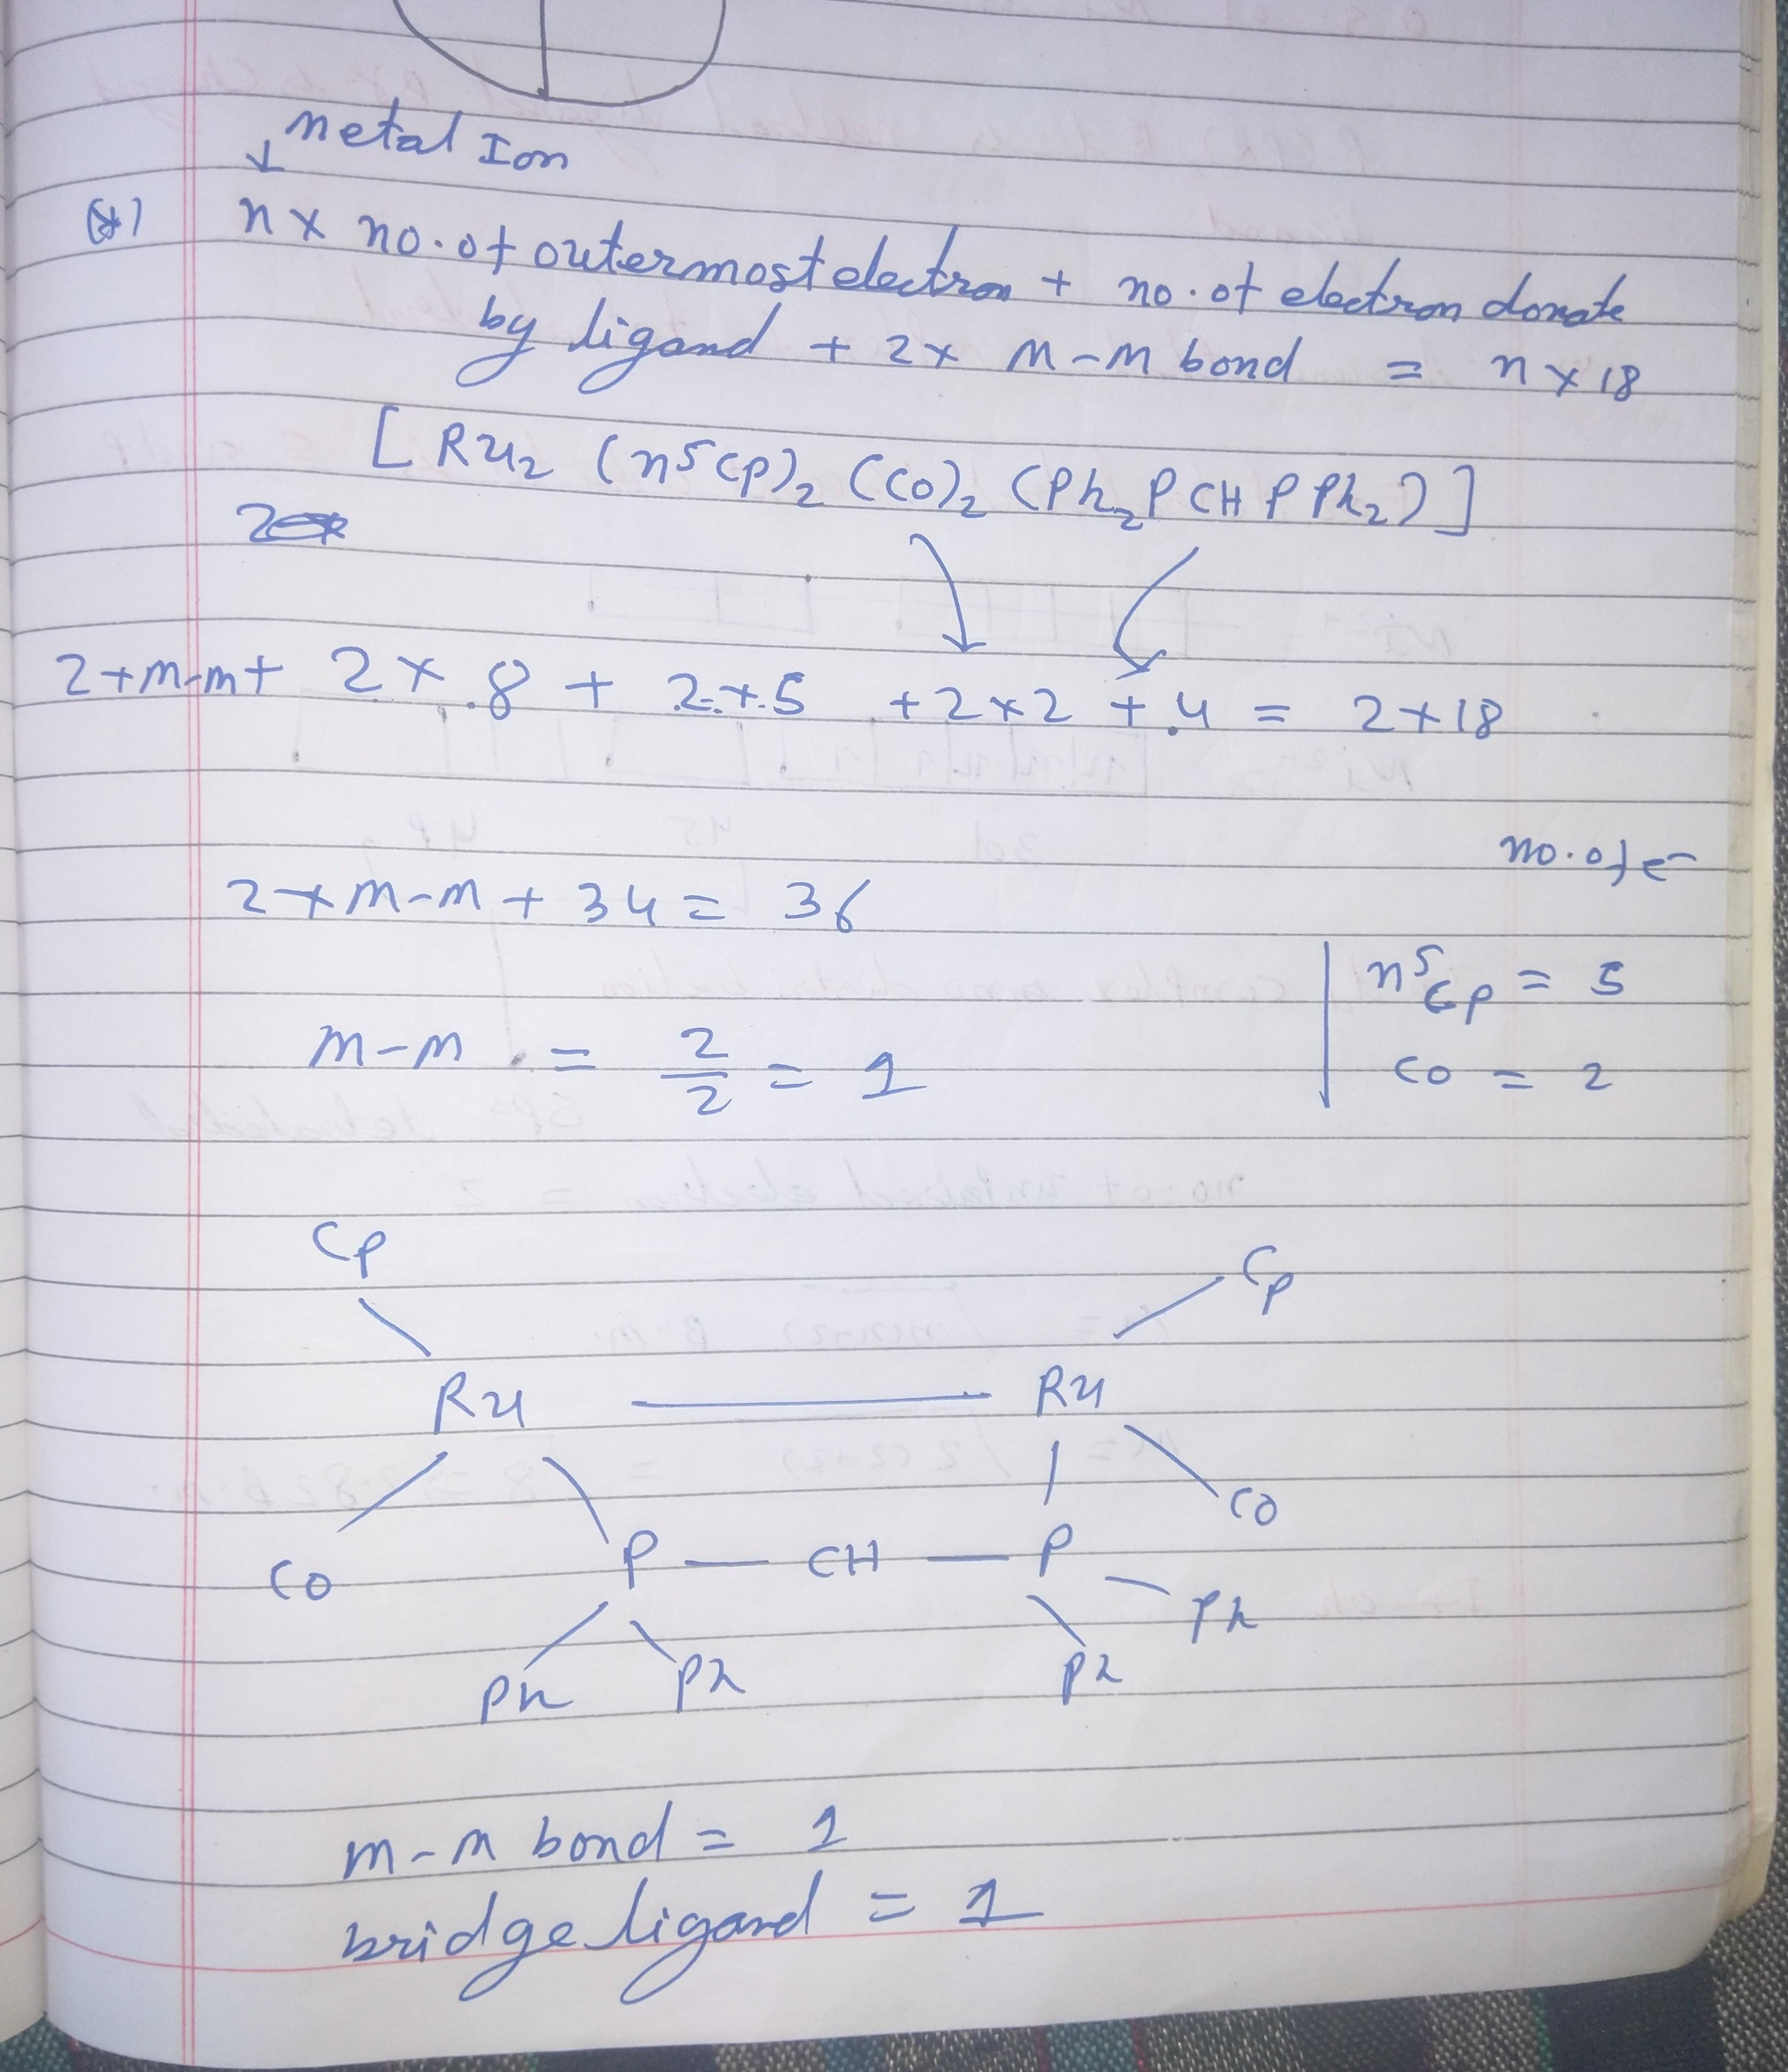 metal Ion
↓
Q) n × no. of outermost electron + no. of electron donate
by ligand + 2× M-M bond = n × 18
[ Ru₂ (η⁵Cp)₂ (CO)₂ (Ph₂PCHPPh₂) ]
2
2×m-m+ 2 × 8 + 2×5 +2×2 + 4 = 2×18
no. of e⁻
2×M-M + 34 = 36
η⁵Cp = 5
m-m = 2/2 = 1
CO = 2
Cp Cp
Ru Ru
CO P — CH — P CO
Ph Ph Ph Ph
m-m bond = 1
bridge ligand = 1